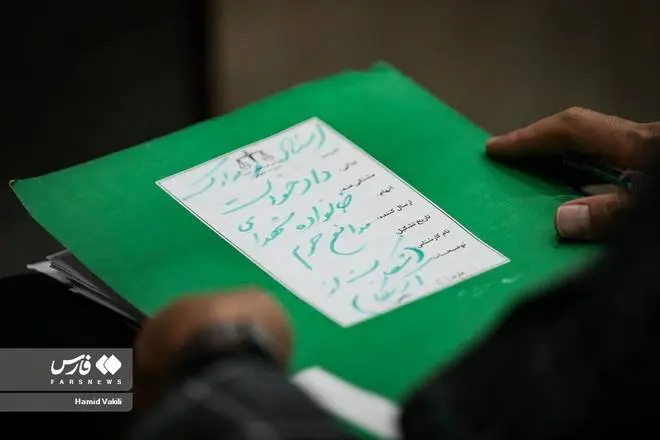 اسناد و مدارک
درخواست
خانواده شهدای
مدافع حرم
شکایت از
آمریکا
شاکی:
مشتکی عنه:
اتهام:
ارسال کننده:
تاریخ تشکیل
نام کارشناس
توضیحات:
فارس
FARSNEWS
Hamid Vakili